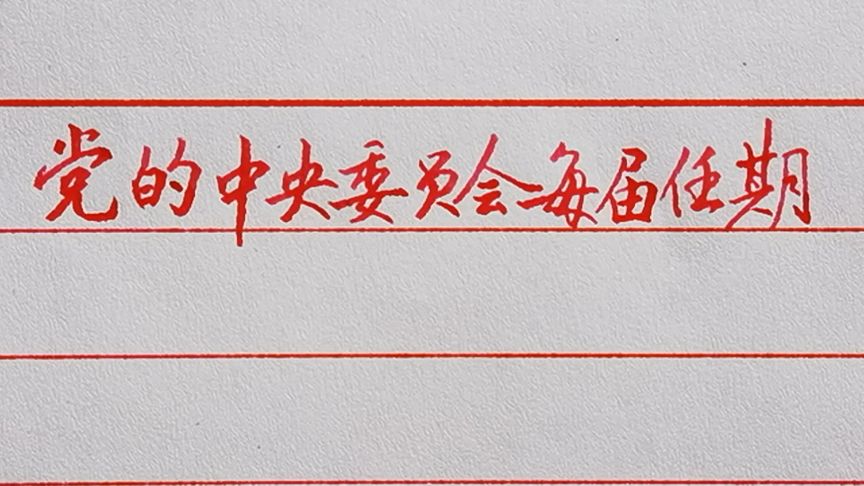 党的中央委员会每届任期